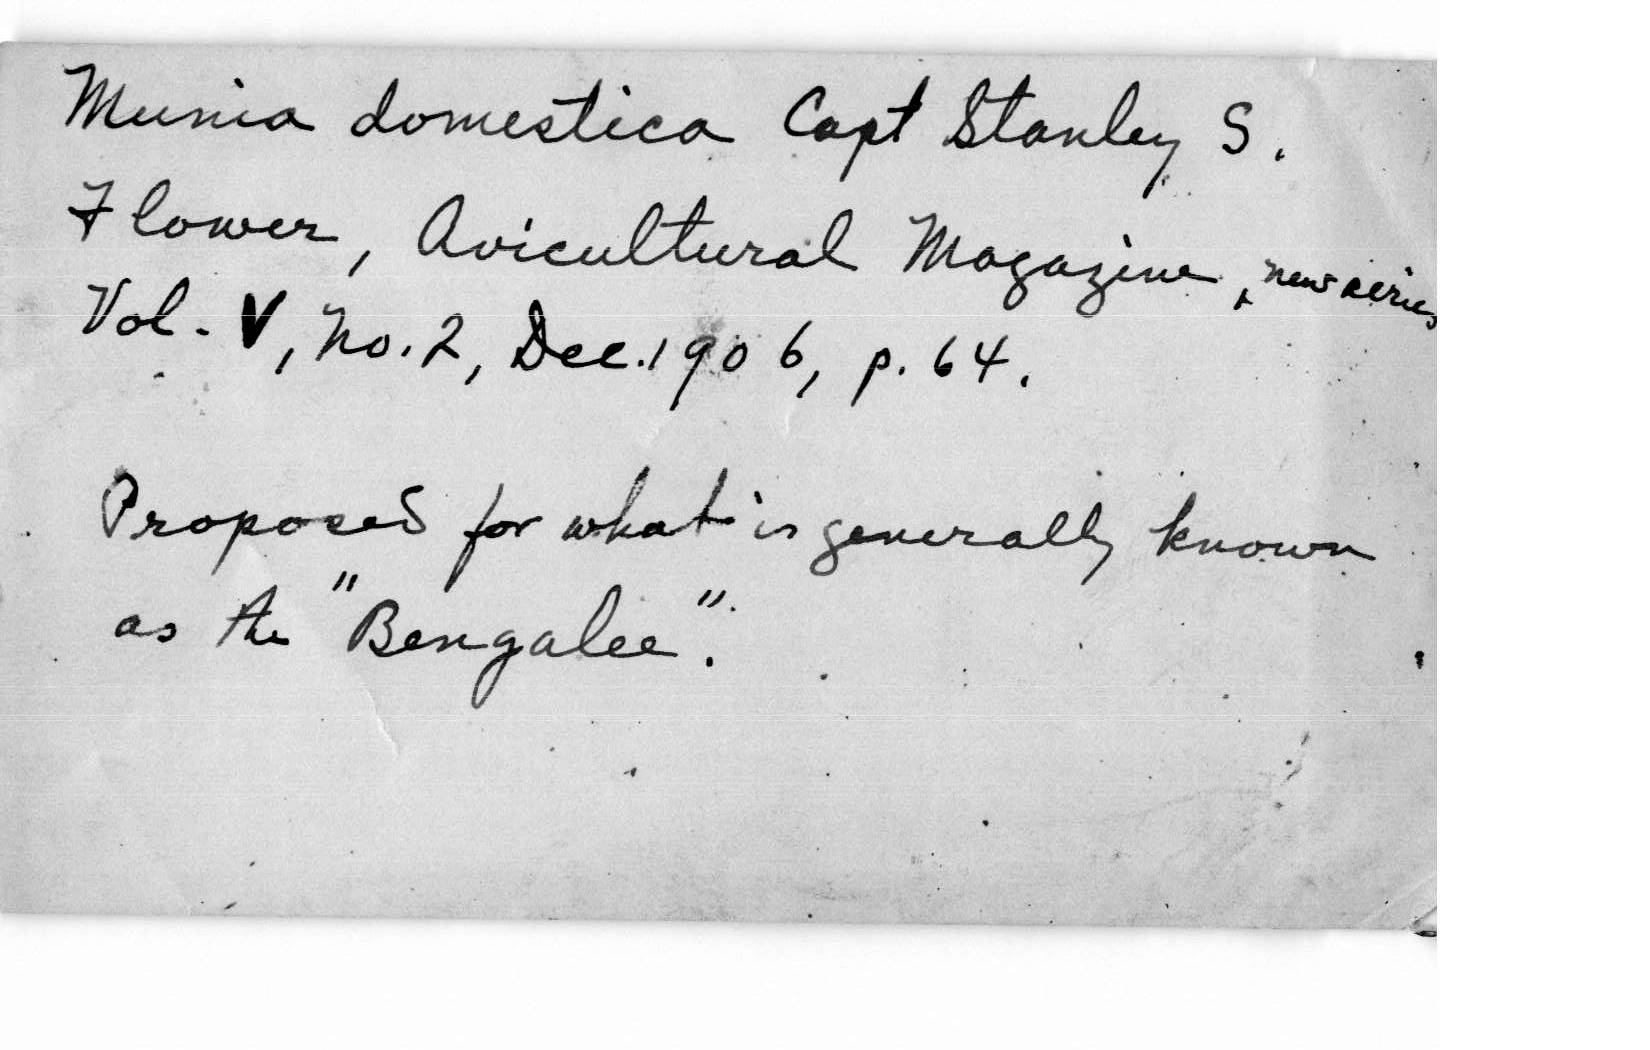 Munia domestica Capt Stanley S.
Flower, Avicultural Magazine, new series
Vol. V, No. 2, Dec. 1906, p. 64.
Proposed for what is generally known
as the "Bengalee".